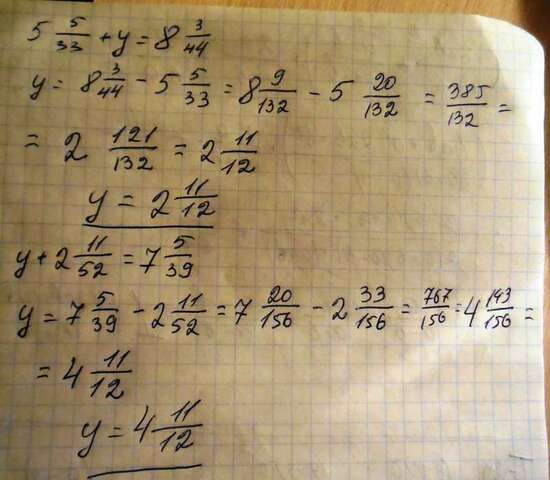 5 5/33 + y = 8 3/44
y = 8 3/44 - 5 5/33 = 8 9/132 - 5 20/132 = 385/132 =
= 2 121/132 = 2 11/12
y = 2 11/12
y + 2 11/52 = 7 5/39
y = 7 5/39 - 2 11/52 = 7 20/156 - 2 33/156 = 767/156 = 4 143/156 =
= 4 11/12
y = 4 11/12